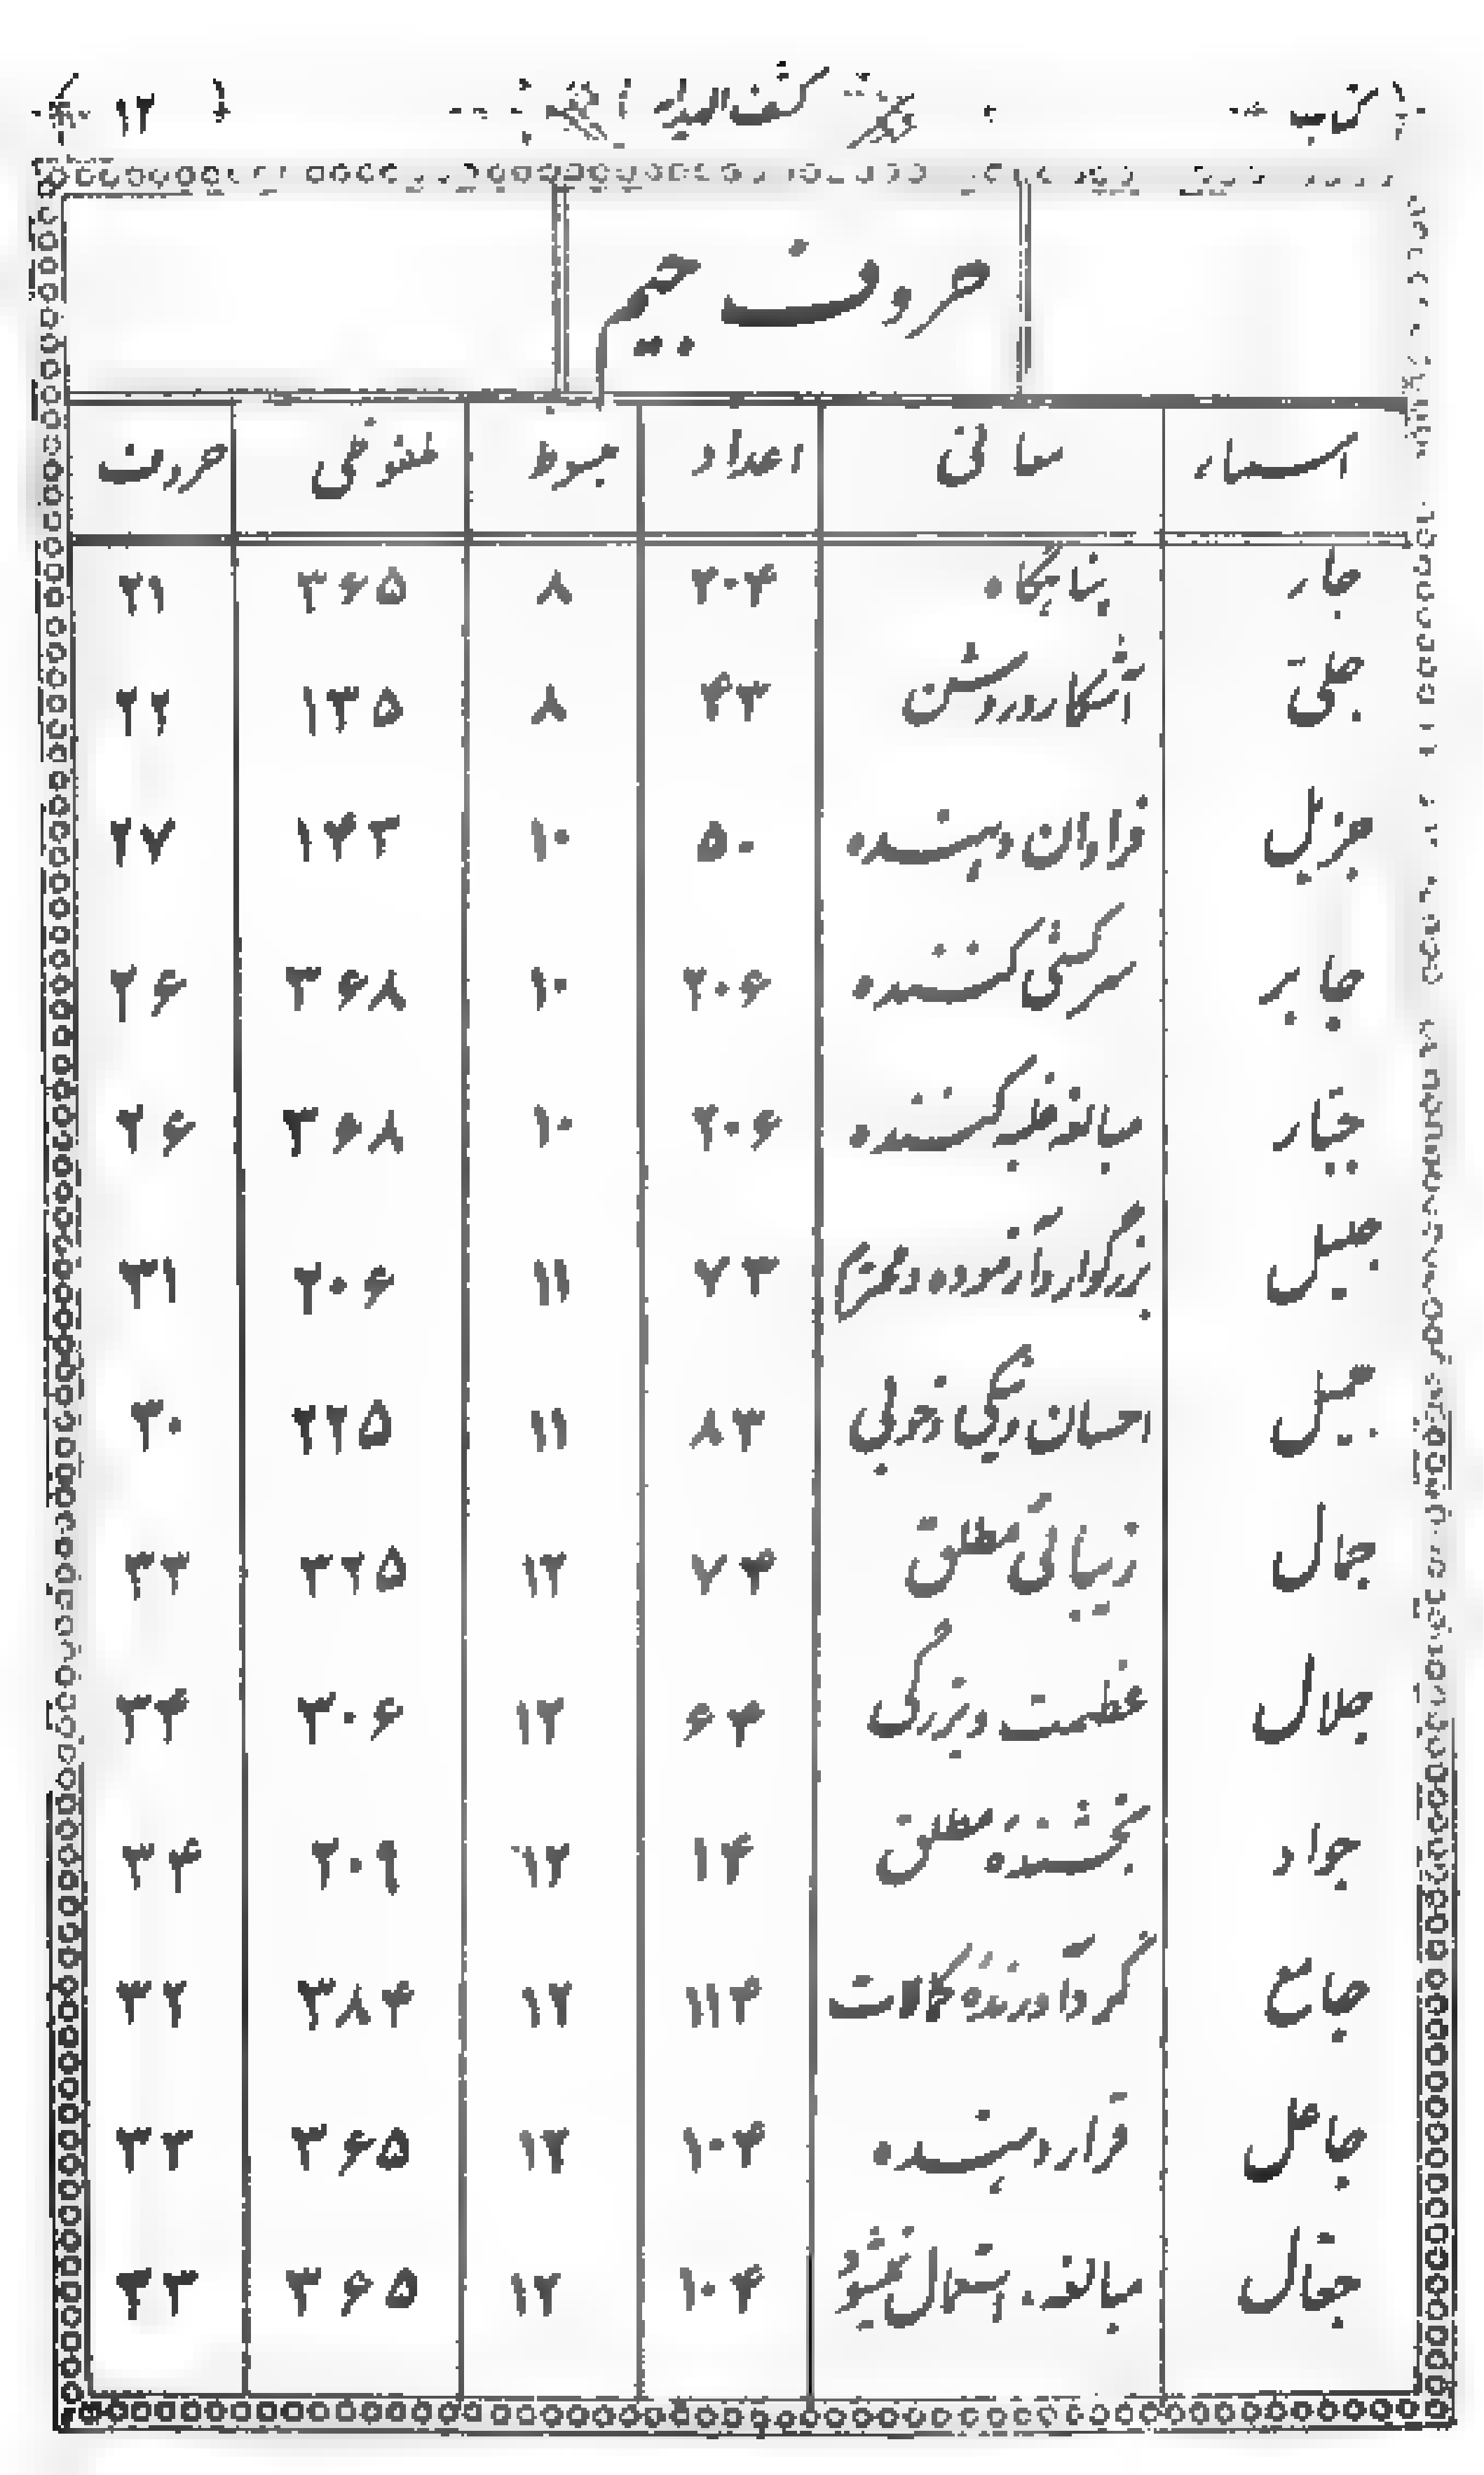 کتاب کشف المیدان ۱۲
حروف جیم
اسماء معانی اعداد مبسوط ملفوظی حروف
جار پناهگاه ۲۰۴ ۸ ۳۶۵ ۲۱
جلیّ آشکار و روشن ۴۳ ۸ ۱۳۵ ۲۲
جزیل فراوان دهنده ۵۰ ۱۰ ۱۴۳ ۲۷
جابر سرکشی کننده ۲۰۶ ۱۰ ۳۶۸ ۲۶
جبّار مبالغه غلبه کننده ۲۰۶ ۱۰ ۳۶۸ ۲۶
جلیل بزرگوار و آزموده و محترم ۷۳ ۱۱ ۲۰۶ ۳۱
جمیل احسان و نیکی و خوبی ۸۳ ۱۱ ۲۲۵ ۳۰
جمال زیبائی مطلق ۷۴ ۱۲ ۳۲۵ ۳۳
جلال عظمت و بزرگی ۶۴ ۱۲ ۳۰۶ ۳۴
جواد بخشندهٔ مطلق ۱۴ ۱۲ ۲۰۹ ۳۴
جامع گردآورندهٔ کمالات ۱۱۴ ۱۲ ۳۸۴ ۳۲
جاعل قرار دهنده ۱۰۴ ۱۲ ۳۶۵ ۳۳
جعّال مبالغه . استعمال نمیشود ۱۰۴ ۱۲ ۳۶۵ ۳۳